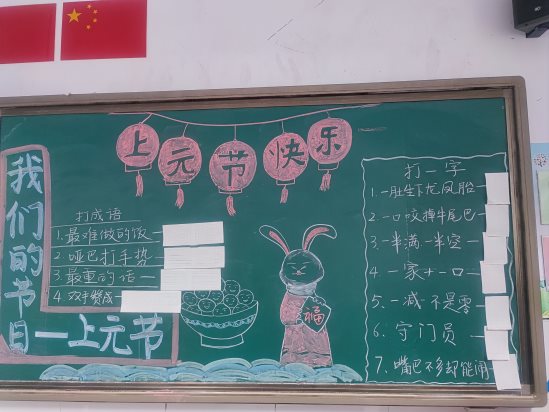 上元节快乐
我们的节日—上元节
打成语
1.最难做的饭
2.哑巴打手势
3.最重的话
4.双手赞成
福
打一字
1.一肚生下龙凤胎
2.一口咬掉牛尾巴
3.一半满一半空
4.一家十一口
5.一减一不是零
6.守门员
7.嘴巴不多却能闹